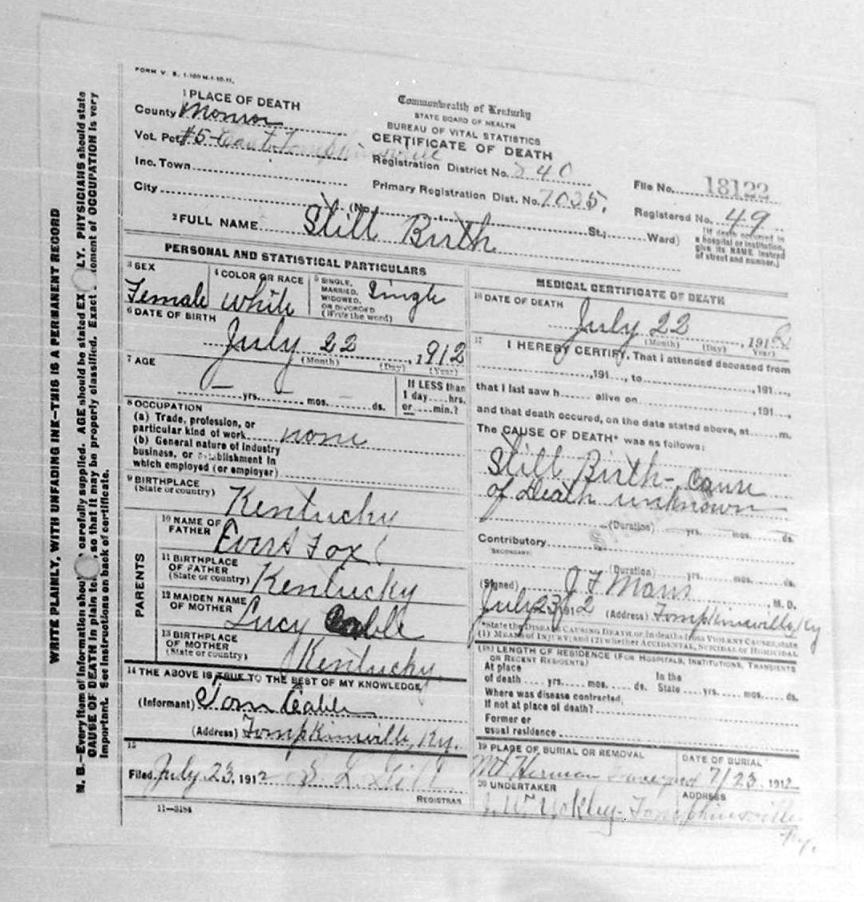 FORM V. S. 1-100 M-1-10-11.
1 PLACE OF DEATH
County Monroe
Vot. Pct #5-East Tompkinsville
Inc. Town
City
(No. St.; Ward)
Commonwealth of Kentucky
STATE BOARD OF HEALTH
BUREAU OF VITAL STATISTICS
CERTIFICATE OF DEATH
Registration District No. 840
Primary Registration Dist. No. 7025.
File No. 18122
Registered No. 49
[If death occurred in
a hospital or institution,
give its NAME instead
of street and number.]
2 FULL NAME Still Birth
PERSONAL AND STATISTICAL PARTICULARS
3 SEX
Female
4 COLOR OR RACE
white
5 SINGLE,
MARRIED,
WIDOWED,
OR DIVORCED
(Write the word)
Single
6 DATE OF BIRTH
July 22, 1912
(Month) (Day) (Year)
7 AGE
— yrs. — mos. — ds.
If LESS than
1 day....hrs.
or....min.?
8 OCCUPATION
(a) Trade, profession, or
particular kind of work none
(b) General nature of industry
business, or establishment in
which employed (or employer)
9 BIRTHPLACE
(State or country) Kentucky
PARENTS
10 NAME OF
FATHER Fox
11 BIRTHPLACE
OF FATHER
(State or country) Kentucky
12 MAIDEN NAME
OF MOTHER Lucy Cable
13 BIRTHPLACE
OF MOTHER
(State or country) Kentucky
14 THE ABOVE IS TRUE TO THE BEST OF MY KNOWLEDGE
(Informant) Tom Cable
(Address) Tompkinsville, Ky.
15
Filed July 23, 1912
REGISTRAR
11-3184
MEDICAL CERTIFICATE OF DEATH
16 DATE OF DEATH
July 22, 1912
(Month) (Day) Year)
17 I HEREBY CERTIFY, That I attended deceased from
,191 , to ,191 ,
that I last saw h alive on ,191 ,
and that death occured, on the date stated above, at m.
The CAUSE OF DEATH* was as follows:
Still Birth - Cause
of Death unknown
(Duration) yrs. mos. ds.
Contributory
SECONDARY
(Duration) yrs. mos. ds.
(Signed) J F Marrs M. D.
July 23, 1912 (Address) Tompkinsville, Ky
*State the DISEASE CAUSING DEATH, or, in deaths from VIOLENT CAUSES, state
(1) MEANS OF INJURY; and (2) whether ACCIDENTAL, SUICIDAL or HOMICIDAL
(18) LENGTH OF RESIDENCE (FOR HOSPITALS, INSTITUTIONS, TRANSIENTS
OR RECENT RESIDENTS)
At place
of death yrs. mos. ds.
In the
State yrs. mos. ds.
Where was disease contracted,
if not at place of death?
Former or
usual residence
19 PLACE OF BURIAL OR REMOVAL
Mt Herman
DATE OF BURIAL
7/23, 1912
20 UNDERTAKER
J. W. Yokley - Tompkinsville
ADDRESS
Ky.
WRITE PLAINLY, WITH UNFADING INK—THIS IS A PERMANENT RECORD
N. B.—Every item of information should carefully supplied. AGE should be stated EX LY. PHYSICIANS should state
CAUSE OF DEATH in plain te so that it may be properly classified. Exact ement of OCCUPATION is very
important. See instructions on back of certificate.